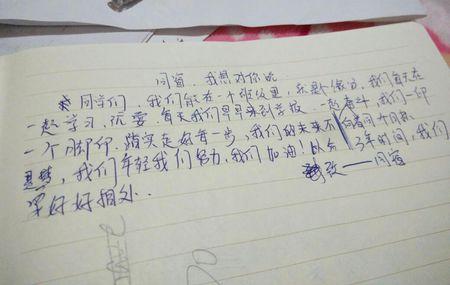 同窗，我想对你说
同学们，我们能在一个班级里，亲是个缘分，我们每天在
一起学习，玩耍，每天我们早早来到学校，一起奋斗，我们一印
一个脚印，踏实走好每一步，我们的未来不
，我们年轻我们努力，我们加油！以后3年时间，我们
好好相处．
致——同窗